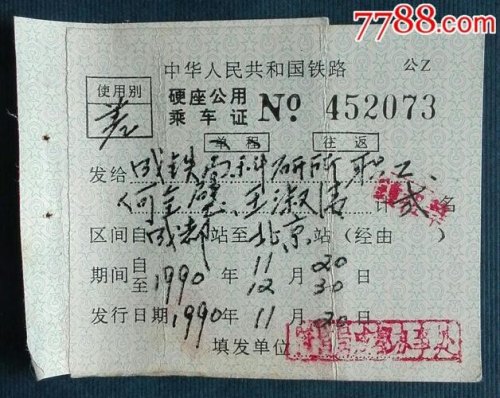 7788.com
中华人民共和国铁路
公Z
使用别
差
硬座公用
乘车证
№ 452073
单程 往返
发给 成铁局科研所职工、
何全璧、王淑清 计 贰 名
区间自 成都 站至 北京 站(经由 )
期间自至 1990 年 11 月 20 日
12 30
发行日期 1990 年 11 月 20 日
填发单位